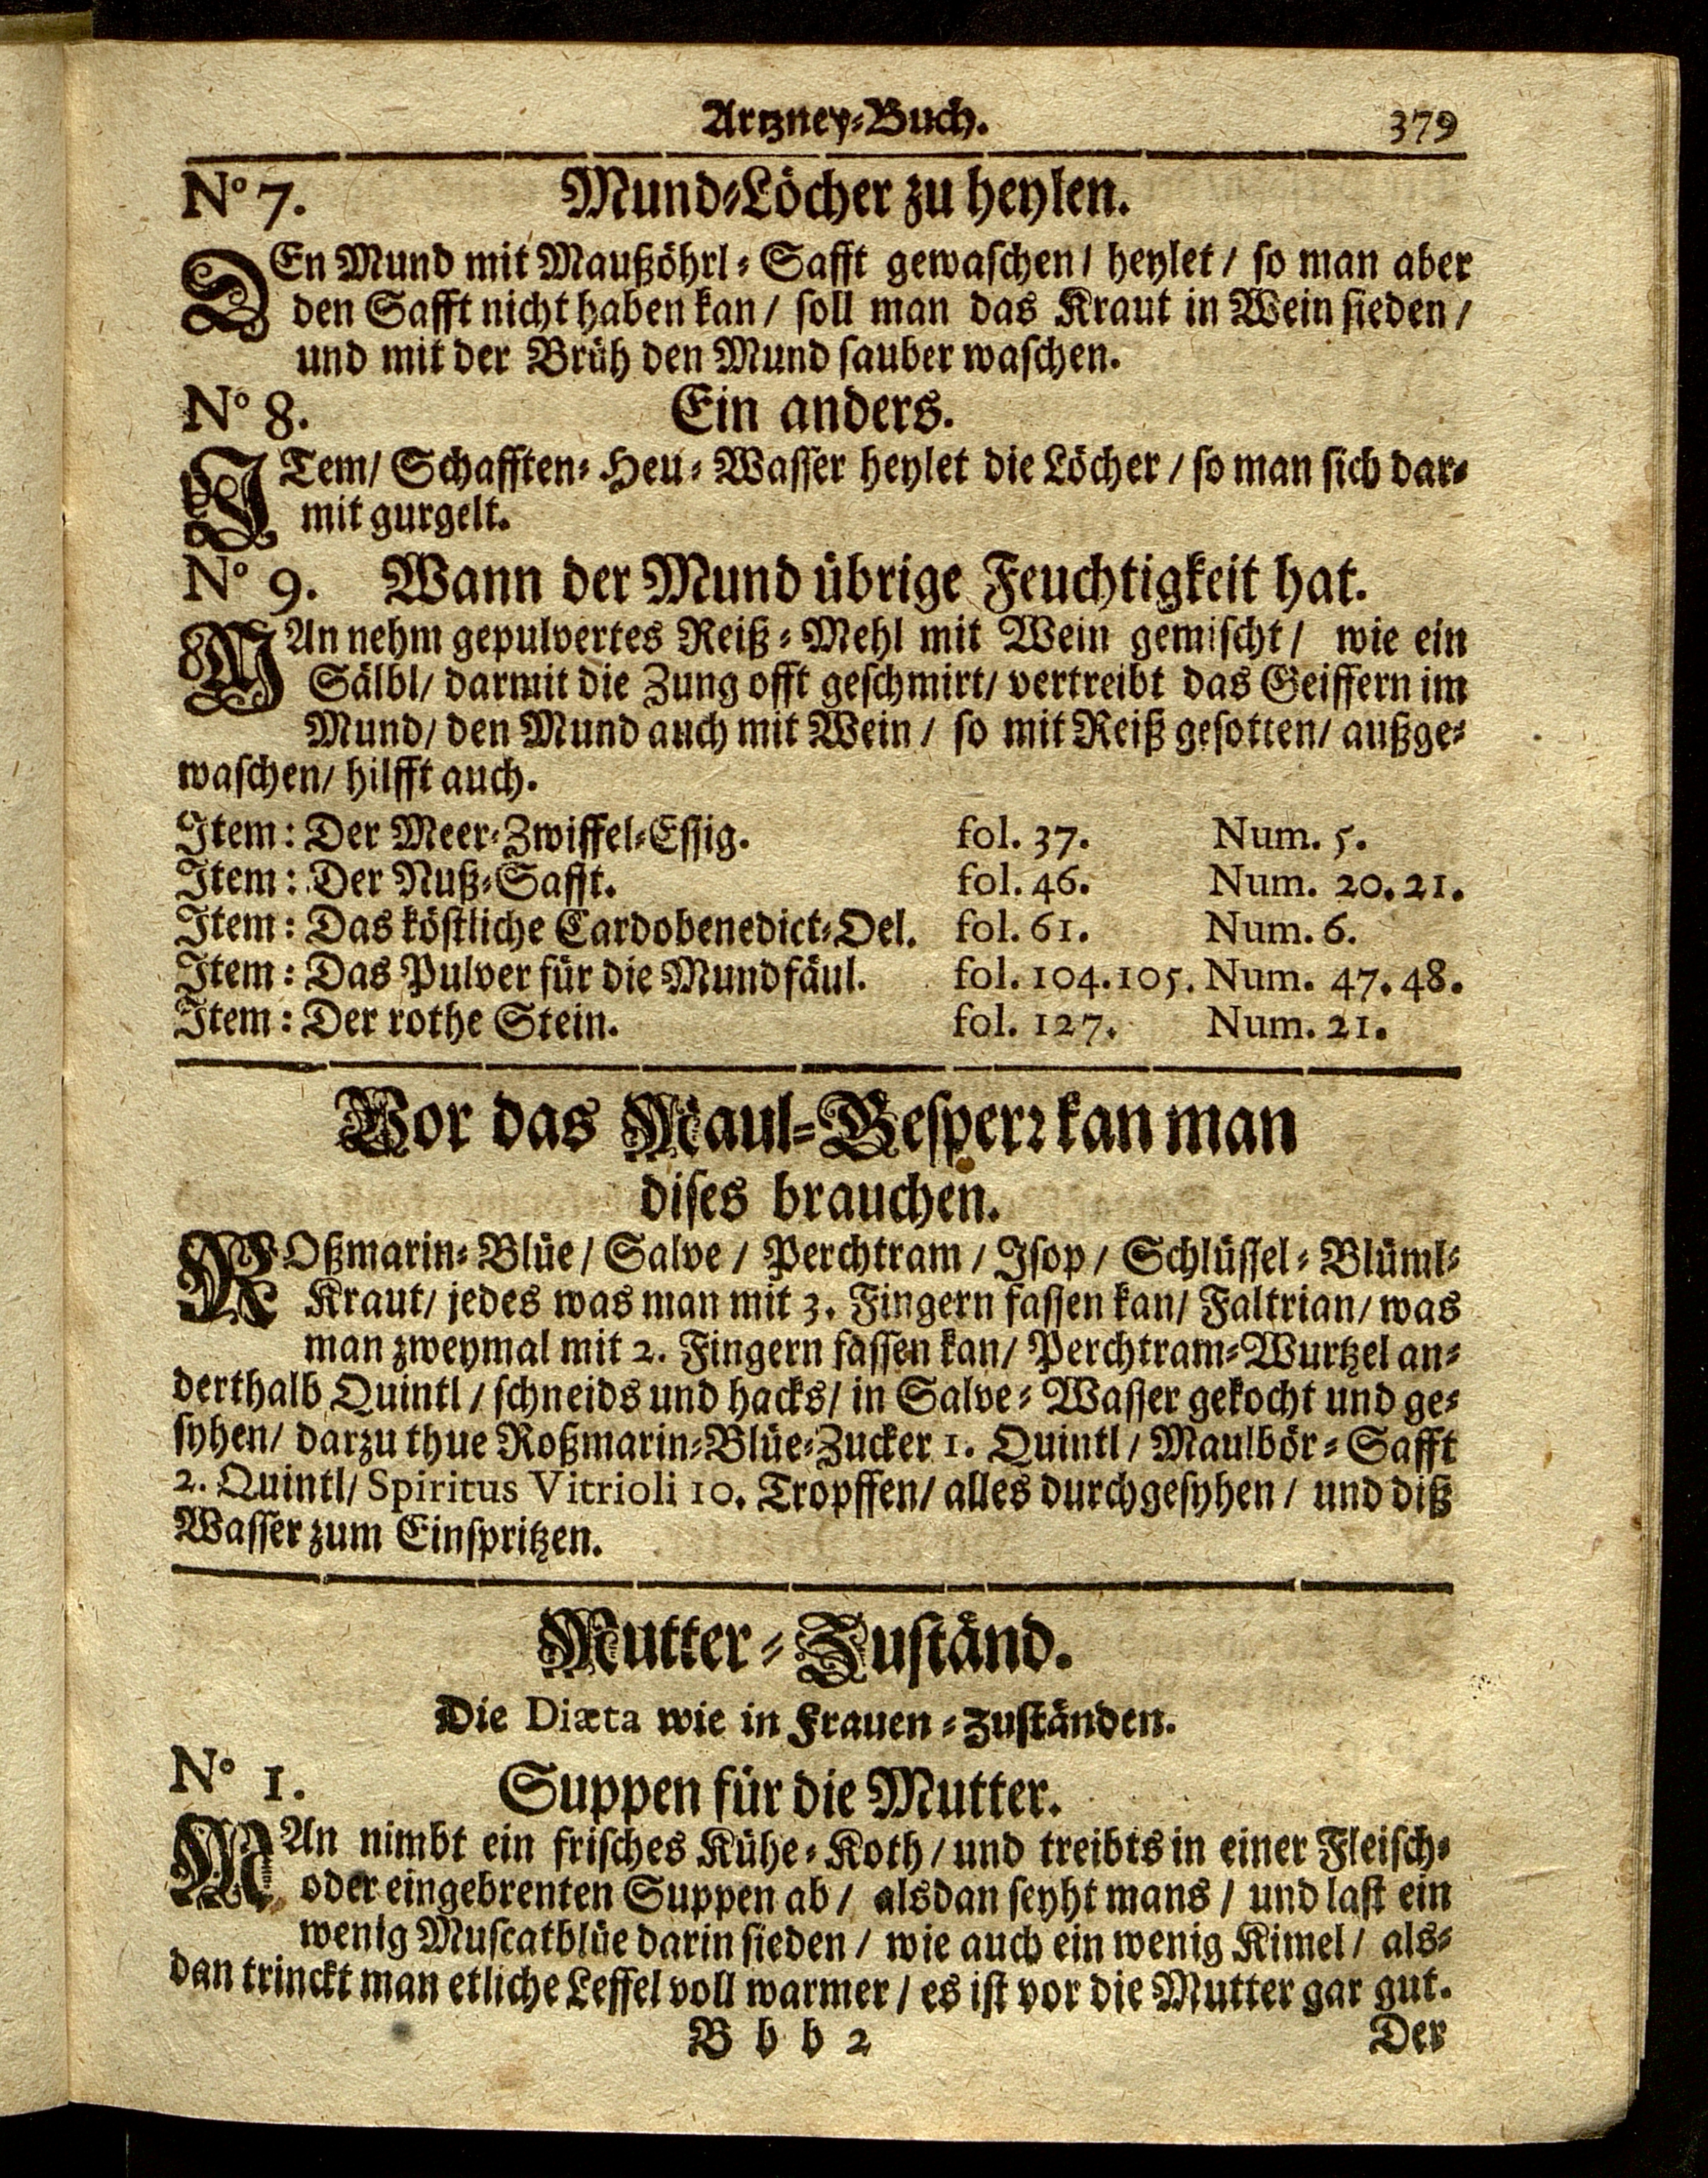 Artzney-Buch. 379
No 7. Mund-Löcher zu heylen.
DEn Mund mit Maußöhrl-Safft gewaschen / heylet / so man aber
den Safft nicht haben kan / soll man das Kraut in Wein sieden /
und mit der Brüh den Mund sauber waschen.
No 8. Ein anders.
ITem / Schafften-Heu-Wasser heylet die Löcher / so man sich dar-
mit gurgelt.
No 9. Wann der Mund übrige Feuchtigkeit hat.
MAn nehm gepulvertes Reiß-Mehl mit Wein gemischt / wie ein
Sälbl / darmit die Zung offt geschmirt / vertreibt das Geiffern im
Mund / den Mund auch mit Wein / so mit Reiß gesotten / außge-
waschen / hilfft auch.
Item: Der Meer-Zwiffel-Essig. fol. 37. Num. 5.
Item: Der Nuß-Safft. fol. 46. Num. 20. 21.
Item: Das köstliche Cardobenedict-Oel. fol. 61. Num. 6.
Item: Das Pulver für die Mundfäul. fol. 104. 105. Num. 47. 48.
Item: Der rothe Stein. fol. 127. Num. 21.
Vor das Maul-Gesperr kan man
dises brauchen.
ROßmarin-Blüe / Salve / Perchtram / Isop / Schlüssel-Blüml-
Kraut / jedes was man mit 3. Fingern fassen kan / Faltrian / was
man zweymal mit 2. Fingern fassen kan / Perchtram-Wurtzel an-
derthalb Quintl / schneids und hacks / in Salve-Wasser gekocht und ge-
syhen / darzu thue Roßmarin-Blüe-Zucker 1. Quintl / Maulbör-Safft
2. Quintl / Spiritus Vitrioli 10. Tropffen / alles durchgesyhen / und diß
Wasser zum Einspritzen.
Mutter-Zuständ.
Die Diæta wie in Frauen-Zuständen.
No 1. Suppen für die Mutter.
MAn nimbt ein frisches Kühe-Koth / und treibts in einer Fleisch-
oder eingebrenten Suppen ab / alsdan seyht mans / und last ein
wenig Muscatblüe darin sieden / wie auch ein wenig Kimel / als-
dan trinckt man etliche Leffel voll warmer / es ist vor die Mutter gar gut.
B b b 2 Der